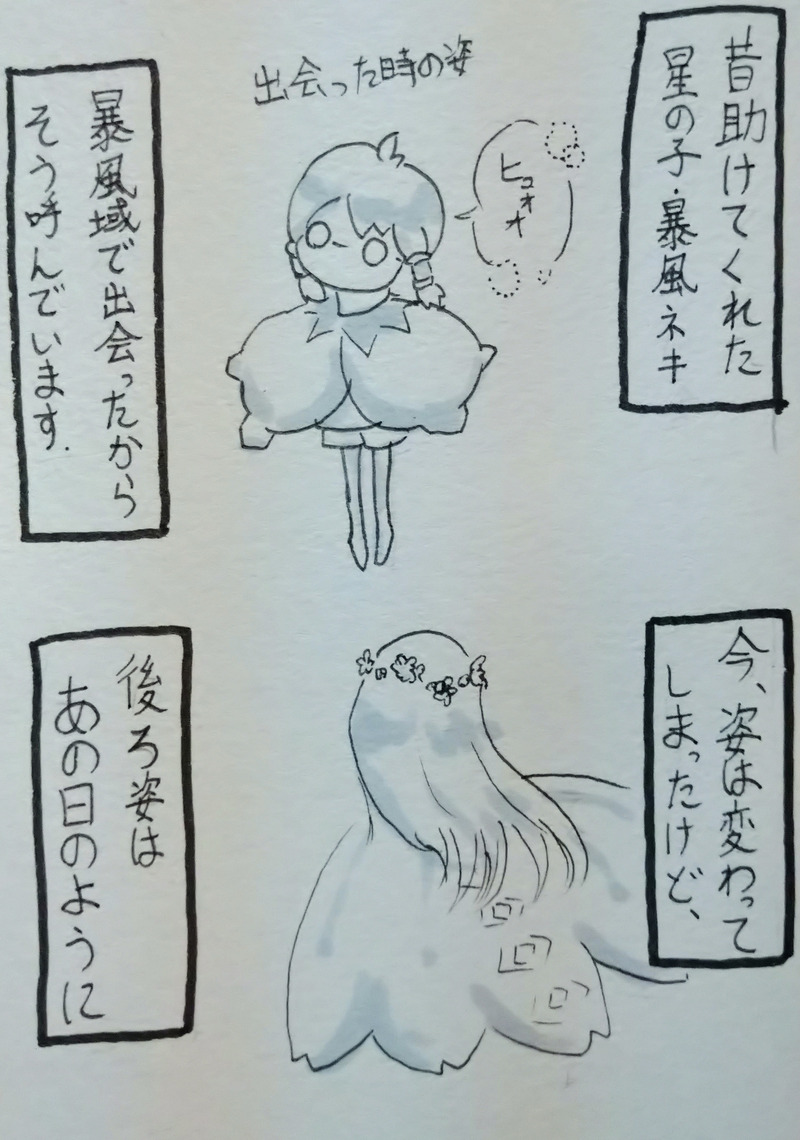 昔助けてくれた
星の子・暴風ネキ
出会った時の姿
ヒュオオオ
暴風域で出会ったから
そう呼んでいます.
今、姿は変わって
しまったけど、
後ろ姿は
あの日のように